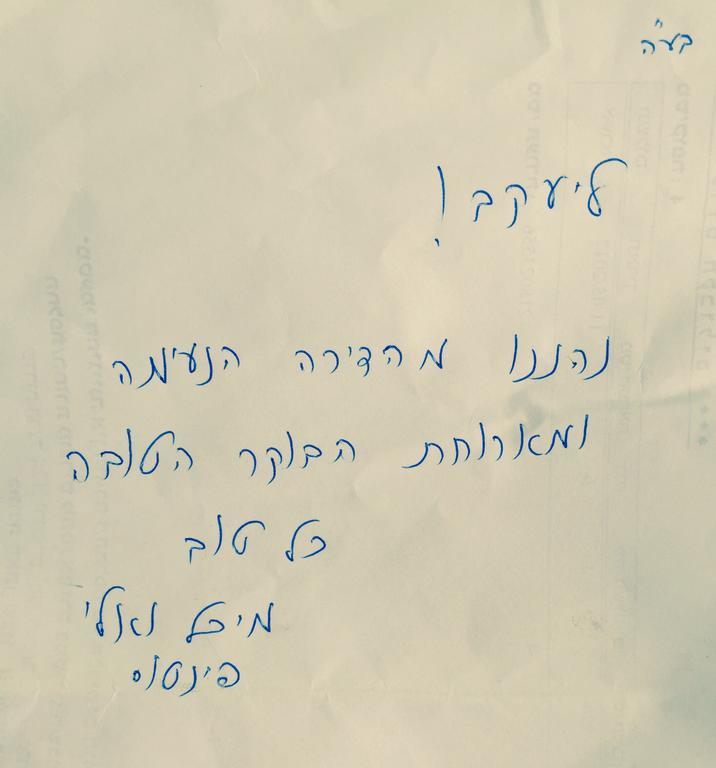 בעז"ה
ליעקב!
נהננו מהדירה הנעימה
ומארוחת הבוקר הטובה
כל טוב
מיכל ואולי
פינטו